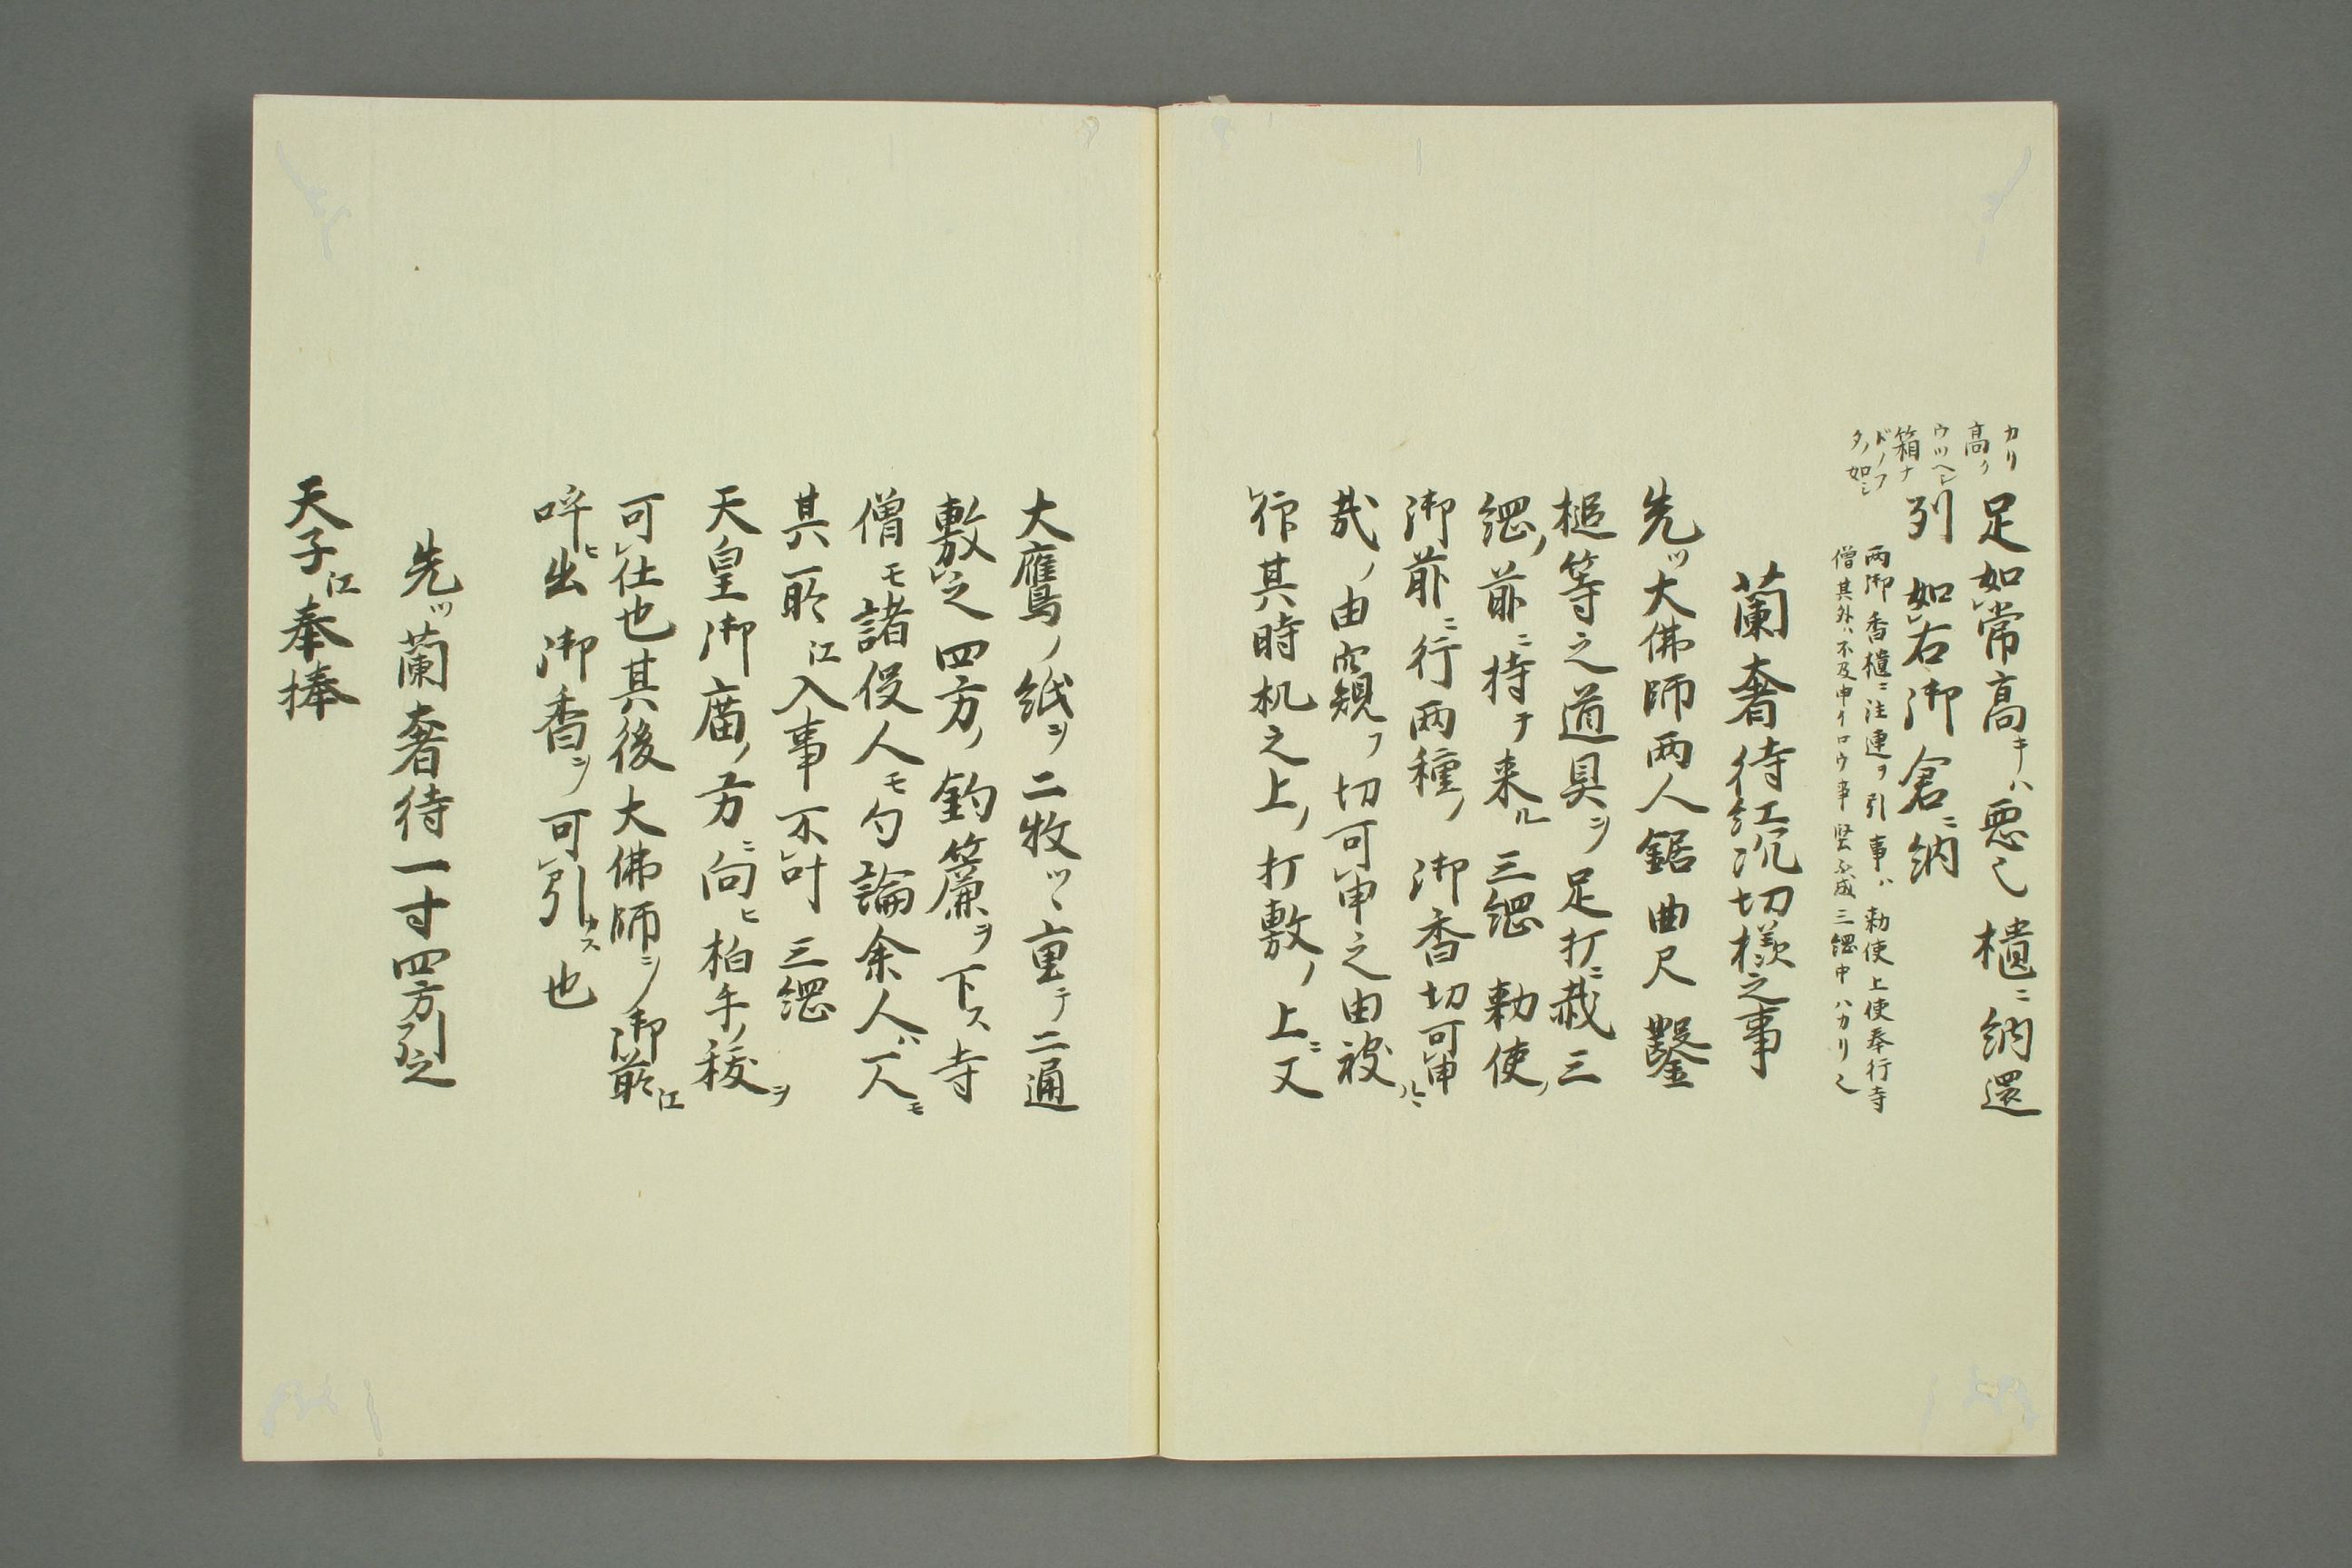 カリ
高ク
ウツヘシ
箱ナ
ドノフ
タノ如シ
足如常高キハ悪シ櫃ニ納還
列如右御倉ニ納
両御香櫃ニ注連ヲ引事ハ勅使上使奉行寺
僧其外ハ不及申イロウ事堅不成三綱中ハカリ也
蘭奢待紅沉切様之事
先ツ大佛師両人鋸曲尺鑿
槌等之道具ヲ足打ニ裁三
綱ノ前ニ持テ来ル三綱勅使ノ
御前ニ行両種ノ御香切可申
哉ノ由窺フ切可申之由被
作其時机之上ノ打敷ノ上ニ又
大鷹ノ紙ヲ二牧ツヽ重テ二通
敷之四方ノ釣簾ヲ下ス寺
僧モ諸役人モ勿論余人ハ一人モ
其所江入事不叶三綱
天皇御庿ノ方ニ向ヒ柏手ノ秡ヲ
可仕也其後大佛師ヲ御前江
呼ヒ出御香ヲ可引カス也
先ツ蘭奢待一寸四方引之
天子江奉捧